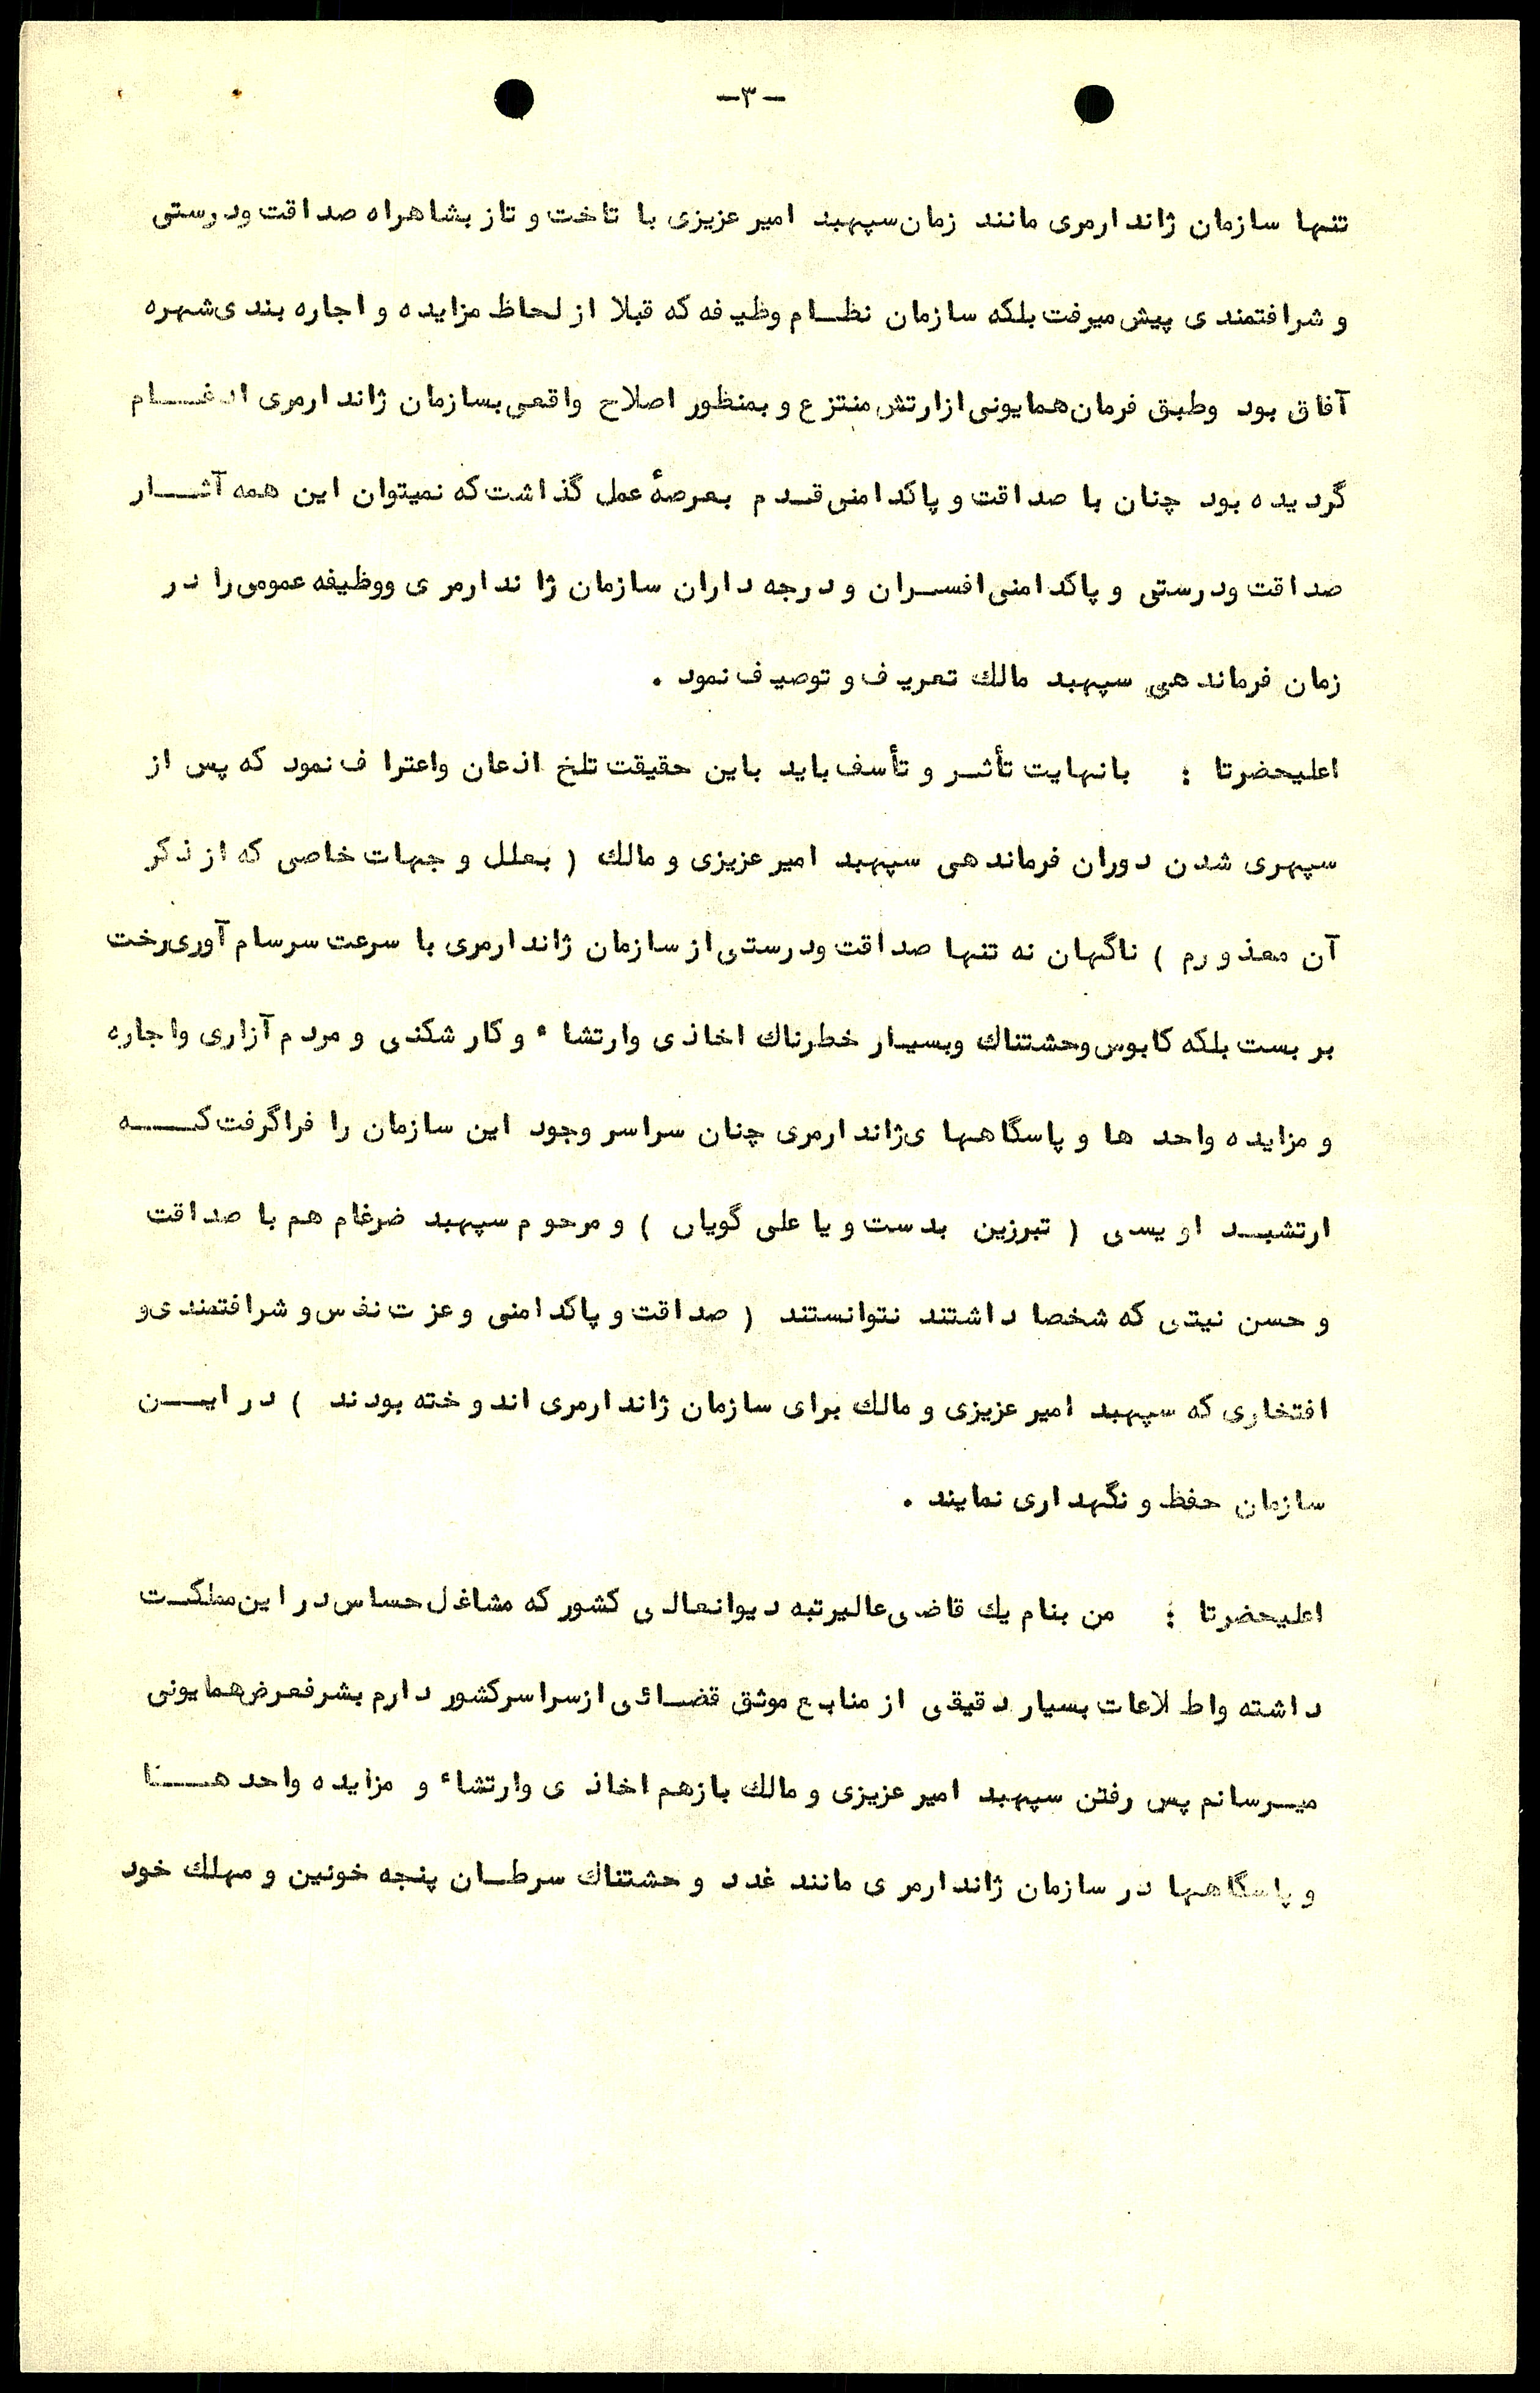 -۳-
تنها سازمان ژاندارمری مانند زمان سپهبد امیر عزیزی با تاخت و تاز بشاهراه صداقت ودرستی
و شرافتمندی پیش میرفت بلکه سازمان نظام وظیفه که قبلا از لحاظ مزایده و اجاره بندی شهره
آفاق بود وطبق فرمان همایونی ازارتش منتزع و بمنظور اصلاح واقعی بسازمان ژاندارمری ادغام
گردیده بود چنان با صداقت و پاکدامنی قدم بعرصهٔ عمل گذاشت که نمیتوان این همه آثار
صداقت ودرستی و پاکدامنی افسران و درجه داران سازمان ژاندارمری ووظیفه عمومی را در
زمان فرماندهی سپهبد مالك تعریف و توصیف نمود .
اعلیحضرتا : بانهایت تأثر و تأسف باید باین حقیقت تلخ اذعان واعتراف نمود که پس از
سپهری شدن دوران فرماندهی سپهبد امیر عزیزی و مالك ( بعلل و جهات خاصی که از ذکر
آن معذورم ) ناگهان نه تنها صداقت ودرستی از سازمان ژاندارمری با سرعت سرسام آوری رخت
بر بست بلکه کابوس وحشتناك وبسیار خطرناك اخاذی وارتشاء و کار شکنی و مردم آزاری واجاره
و مزایده واحد ها و پاسگاههای ژاندارمری چنان سراسر وجود این سازمان را فراگرفت که
ارتشبد اویسی ( تبرزین بدست و یا علی گویان ) و مرحوم سپهبد ضرغام هم با صداقت
و حسن نیتی که شخصا داشتند نتوانستند ( صداقت و پاکدامنی و عزت نفس و شرافتمندی و
افتخاری که سپهبد امیر عزیزی و مالك برای سازمان ژاندارمری اندوخته بودند ) در این
سازمان حفظ و نگهداری نمایند .
اعلیحضرتا : من بنام یك قاضی عالیرتبه دیوانعالی کشور که مشاغل حساس در این مملکت
داشته واطلاعات بسیار دقیقی از منابع موثق قضائی ازسراسرکشور دارم بشرفعرض همایونی
میرسانم پس رفتن سپهبد امیر عزیزی و مالك بازهم اخاذی وارتشاء و مزایده واحد ها
و پاسگاهها در سازمان ژاندارمری مانند غدد و حشتناك سرطان پنجه خونین و مهلك خود